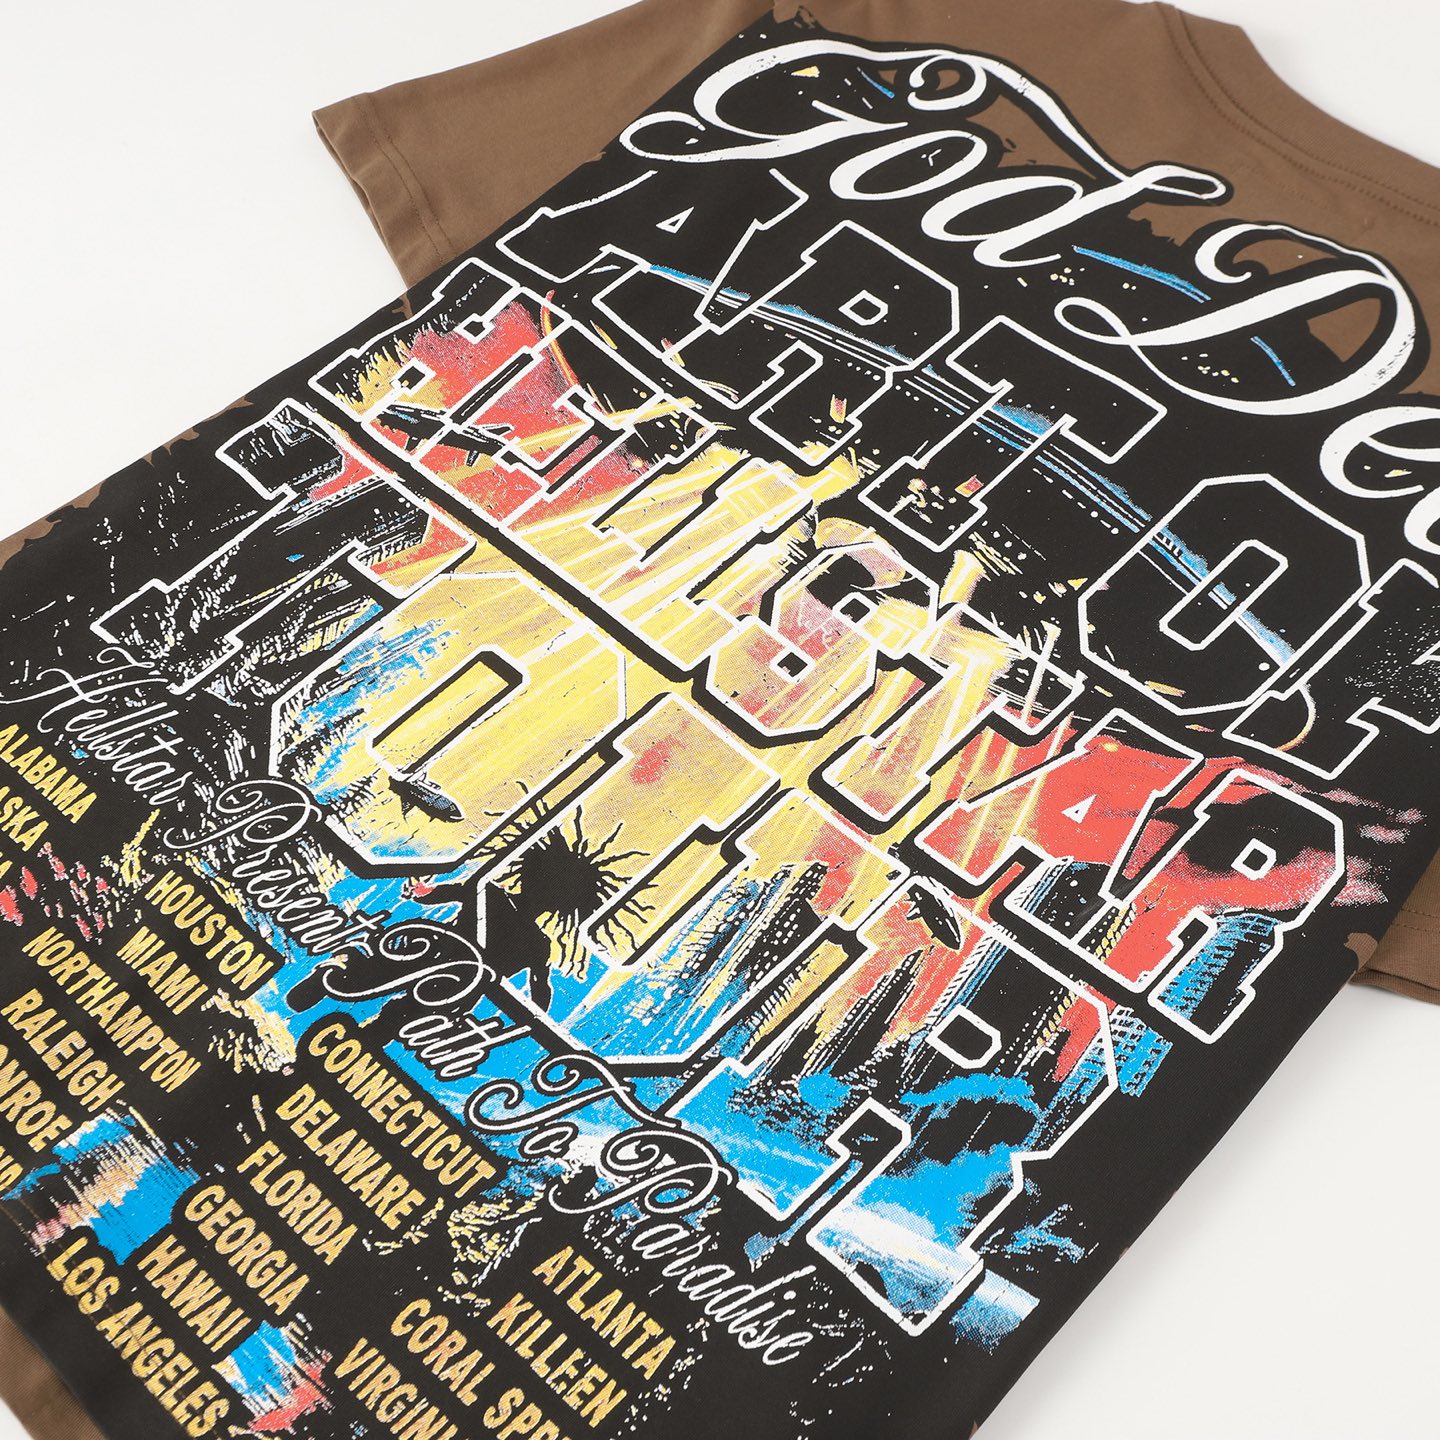 God De
ART OF
HELLSTAR
TOUR
Hellstar Present Path To Paradise
ALABAMA
HOUSTON
MIAMI
NORTHAMPTON
RALEIGH
CONNECTICUT
DELAWARE
FLORIDA
GEORGIA
HAWAII
LOS ANGELES
ATLANTA
KILLEEN
CORAL SPR
VIRGIN